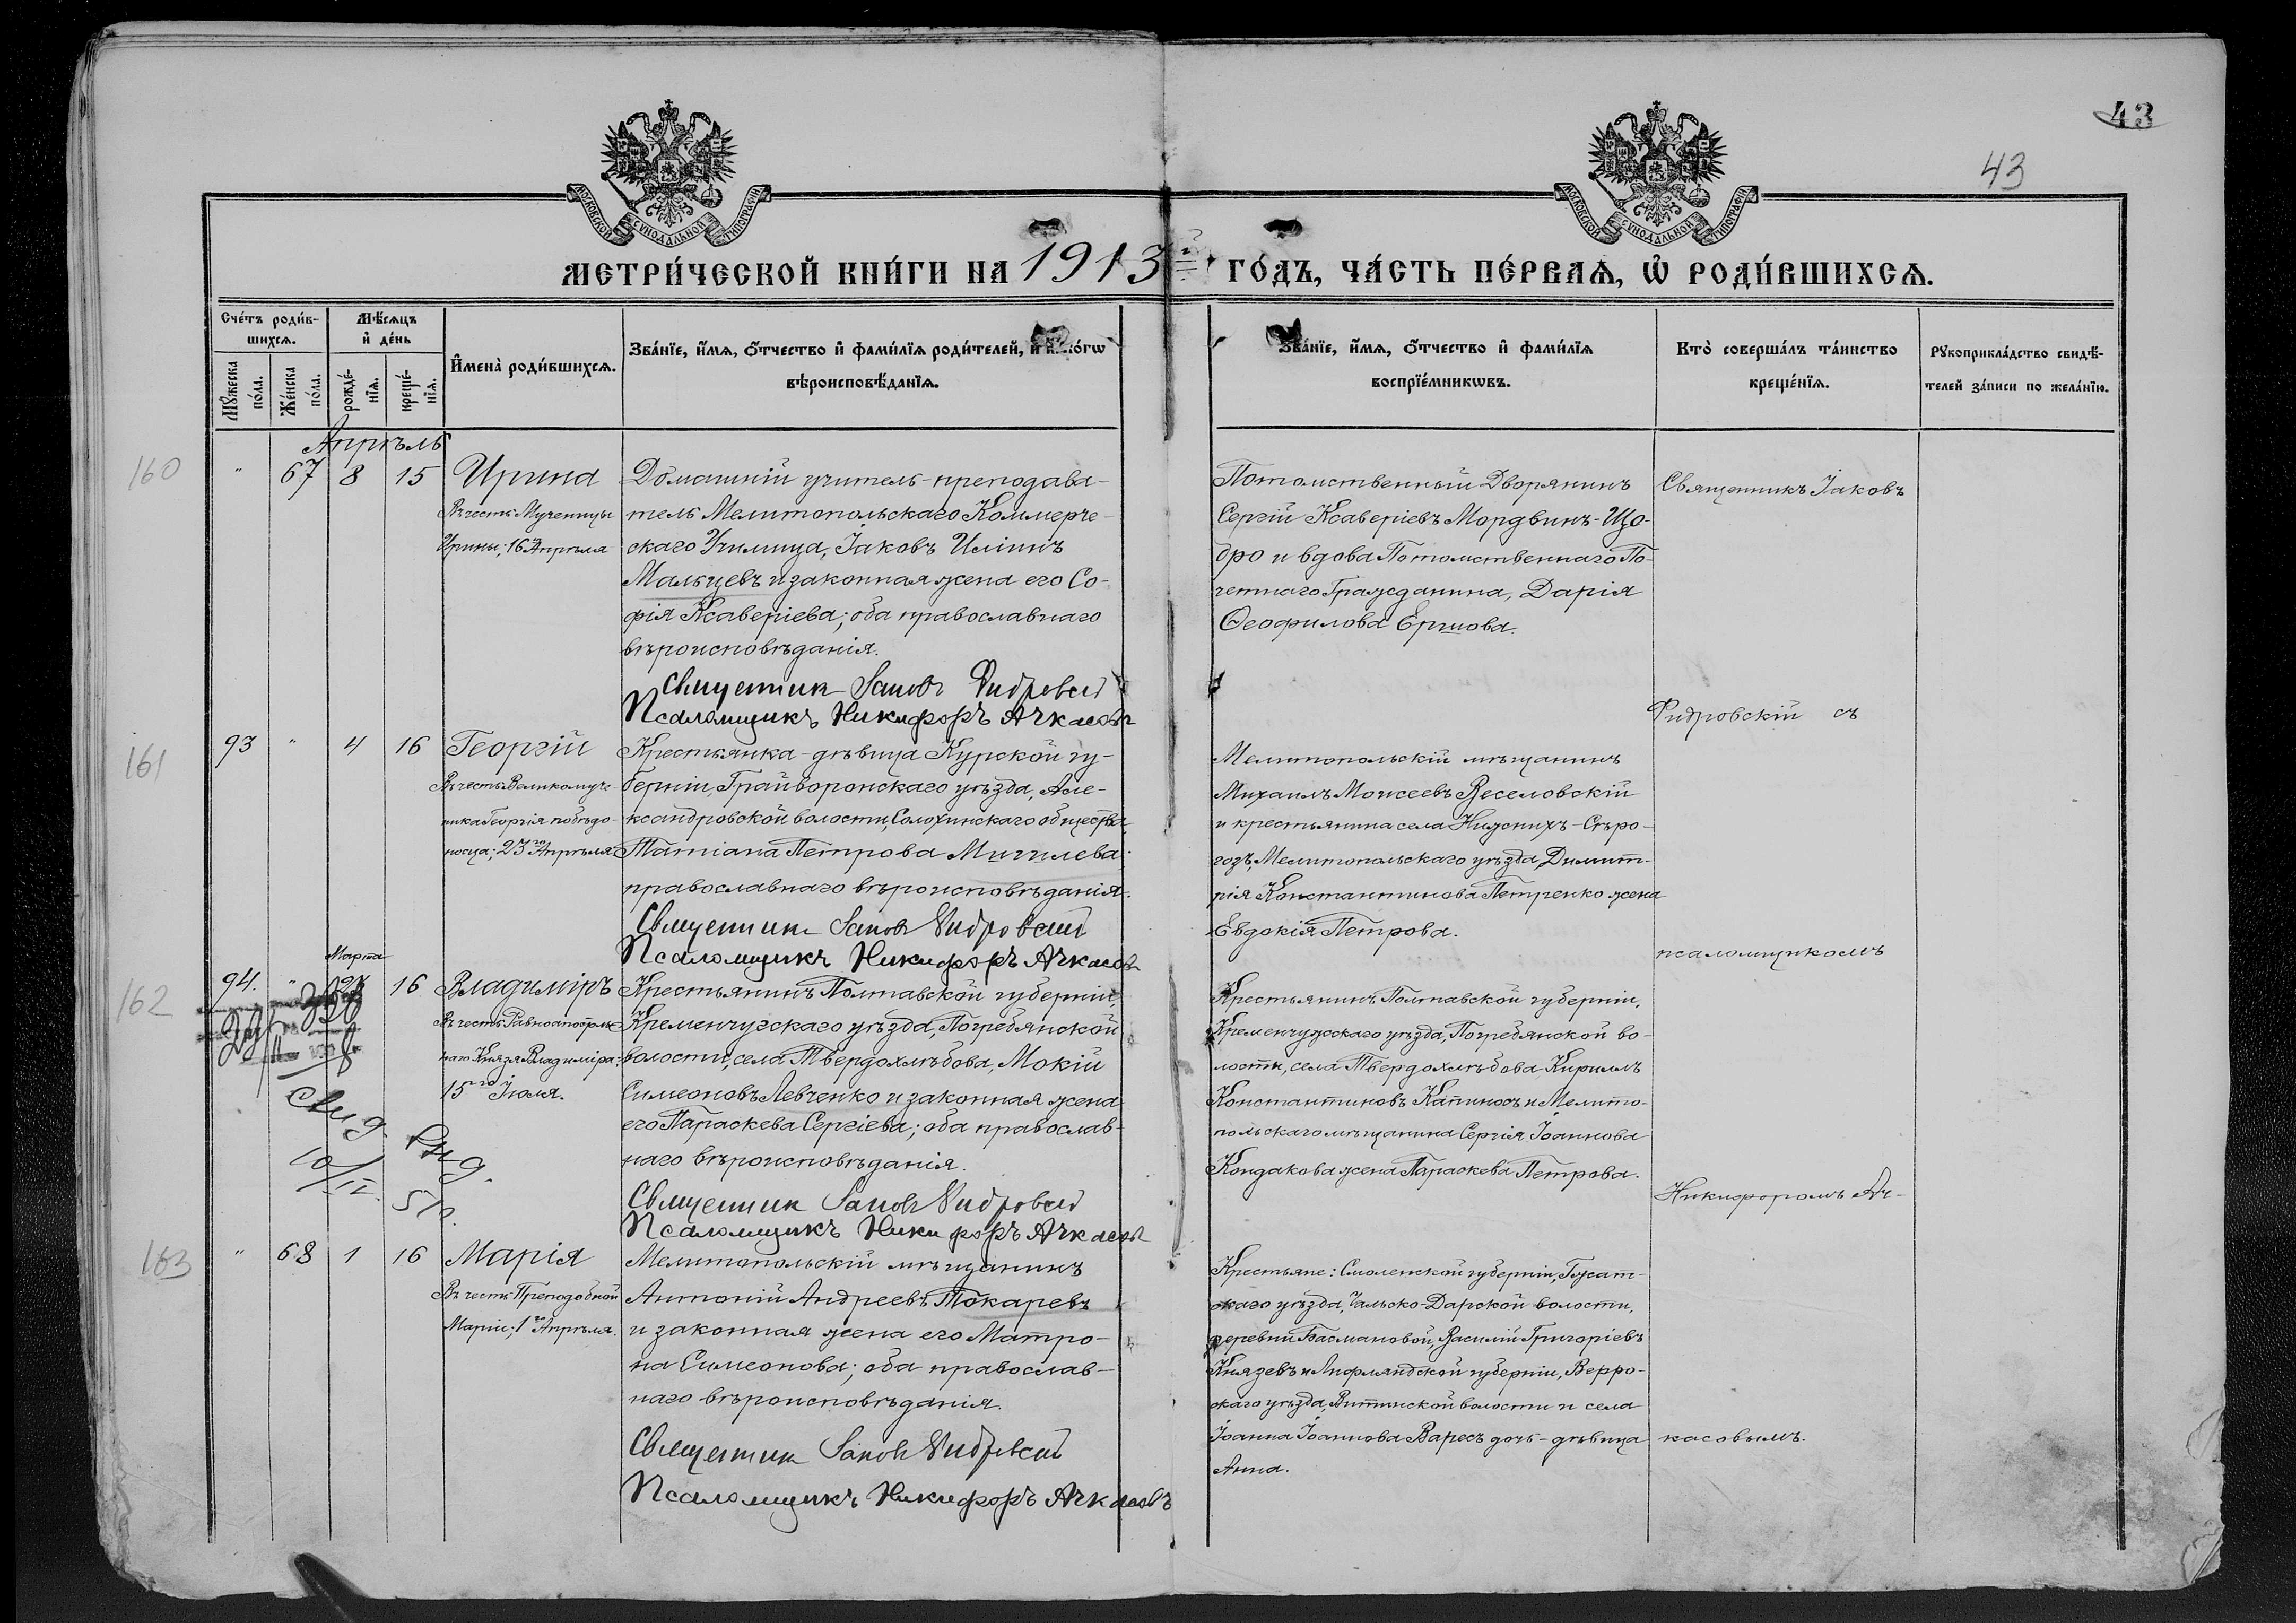 43
43
МОСКОВСКОЙ СѴНОДАЛЬНОЙ ТИПОГРАФІИ
МОСКОВСКОЙ СѴНОДАЛЬНОЙ ТИПОГРАФІИ
МЕТРИ́ЧЕСКОЙ КНИ́ГИ НА 1913й ГО́ДЪ, ЧА́СТЬ ПЕ́РВАѦ, Ѡ РОДИ́ВШИХСѦ.
Сче́тъ роди́в-
шихсѧ.
Мꙋ́жеска
по́ла.
Же́нска
по́ла.
Мѣ́сѧцъ
и҆ де́нь
рожде́-
нїѧ.
креще́-
нїѧ.
И҆мена̀ роди́вшихсѧ.
Зва́нїе, и҆́мѧ, ѻ҆́тчество и҆ фами́лїѧ роди́телей, и҆
вѣроисповѣ́данїѧ.
Зва́нїе, и҆́мѧ, ѻ҆́тчество и҆ фами́лїѧ
воспрїе́мникѡвъ.
Кто̀ соверша́лъ та́инство
креще́нїѧ.
Рꙋкоприкла́дство свидѣ́-
телей за́писи по жела́нїю.
Апрѣль
160
" 67 8 15 Ирина
Въ честь Мученицы
Ирины; 16го Апрѣля
Домашній учитель-преподава-
тель Мелитопольскаго Коммерче-
скаго Училища, Іаковъ Иліинъ
Мальцевъ и законная жена его Со-
фія Ксаверіева; оба православнаго
вѣроисповѣданія.
Священник Іаков Видровский
Псаломщикъ Никифоръ Ачкасовъ
Потомственный Дворянинъ
Сергій Ксаверіевъ Мордвинъ-Що-
дро и вдова Потомственнаго По-
четнаго Гражданина, Дарія
Ѳеофилова Ершова.
Священникъ Іаковъ
Видровскій съ
161
93 " 4 16 Георгій
Въ честь Великомуче-
ника Георгія побѣдо-
носца; 23го Апрѣля
Крестьянка-дѣвица Курской гу-
берніи, Грайворонскаго уѣзда, Але-
ксандровской волости, Солохинскаго общества
Татіана Петрова Мигилева;
православнаго вѣроисповѣданія.
Священник Іаков Видровский
Псаломщикъ Никифоръ Ачкасовъ
Мелитопольскій мѣщанинъ
Михаилъ Моисеевъ Веселовскій
и крестьянина села Нижнихъ-Сѣро-
гозъ, Мелитопольскаго уѣзда, Димит-
рія Константинова Петренко жена
Евдокія Петрова.
псаломщикомъ
Марта
162
94. " 16 Владиміръ
Въ честь Равноапостоль-
наго Князя Владиміра;
15го Іюля.
Крестьянинъ Полтавской губерніи,
Кременчугскаго уѣзда, Погребянской
волости, села Твердохлѣбова, Мокій
Симеоновъ Левченко и законная жена
его Параскева Сергіева; оба православ-
наго вѣроисповѣданія.
Священник Іаков Видровский
Псаломщикъ Никифоръ Ачкасовъ
Крестьянинъ Полтавской губерніи,
Кременчугскаго уѣзда, Погребянской во-
лости, села Твердохлѣбова Кириллъ
Константиновъ Капиносъ и Мелито-
польскаго мѣщанина Сергія Іоаннова
Кондакова жена Параскева Петрова.
Никифоромъ Ач-
163
" 68 1 16 Марія
Въ честь Преподобной
Маріи; 1го Апрѣля.
Мелитопольскій мѣщанинъ
Антоній Андреевъ Токаревъ
и законная жена его Матро-
на Симеонова; оба православ-
наго вѣроисповѣданія.
Священник Іаков Видровский
Псаломщикъ Никифоръ Ачкасовъ
Крестьяне: Смоленской губерніи, Гжат-
скаго уѣзда, волости,
деревни Басмановой, Василій Григоріевъ
Князевъ и Лифляндской губерніи, Верро-
скаго уѣзда, волости и села
Іоанна Іоаннова Варесъ дочь-дѣвица
Анна.
касовымъ.